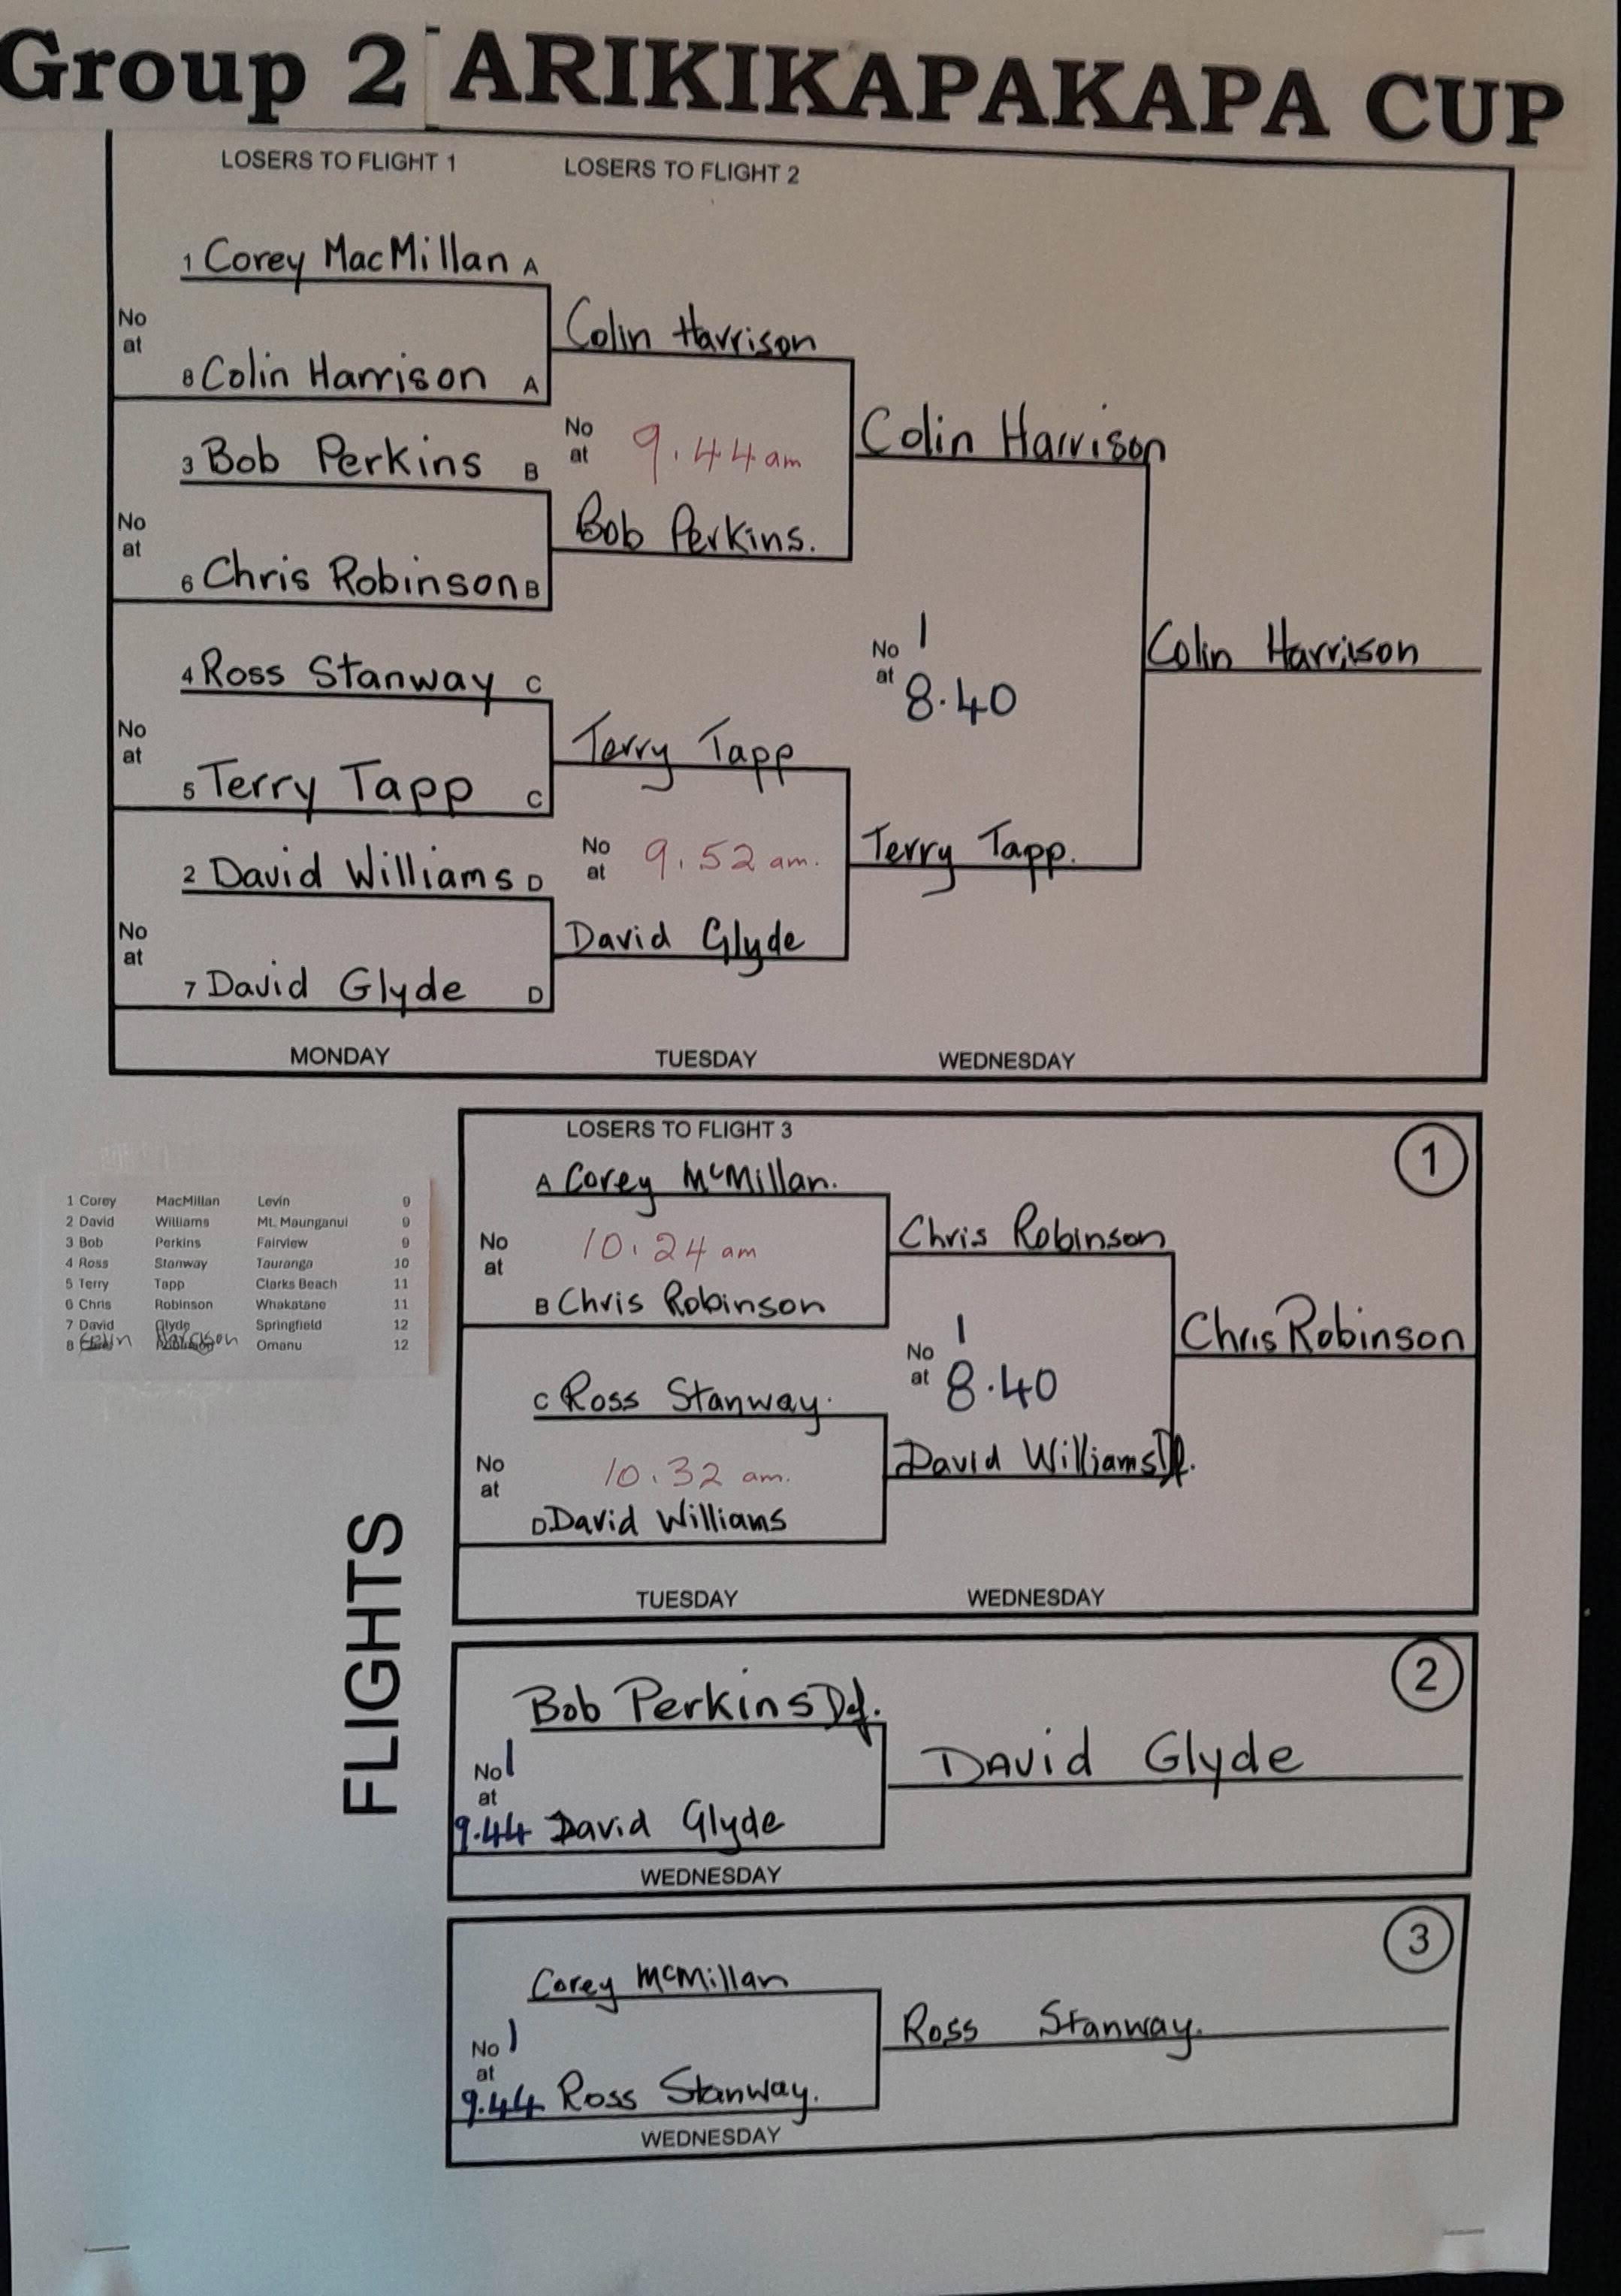 Group 2 ARIKIKAPAKAPA CUP
LOSERS TO FLIGHT 1
LOSERS TO FLIGHT 2
1 Corey MacMillan A
No
at
8 Colin Harrison A
3 Bob Perkins B
No
at
6 Chris Robinson B
4 Ross Stanway C
No
at
5 Terry Tapp C
2 David Williams D
No
at
7 David Glyde D
Colin Harrison
No
at 9.44 am
Bob Perkins.
Terry Tapp
No
at 9.52 am.
David Glyde
Colin Harrison
No 1
at 8.40
Terry Tapp.
Colin Harrison
MONDAY
TUESDAY
WEDNESDAY
1 Corey MacMillan Levin 9
2 David Williams Mt. Maunganui 9
3 Bob Perkins Fairview 9
4 Ross Stanway Tauranga 10
5 Terry Tapp Clarks Beach 11
6 Chris Robinson Whakatane 11
7 David Glyde Springfield 12
8 Colin Harrison Omanu 12
FLIGHTS
LOSERS TO FLIGHT 3
1
A Corey McMillan.
No
at 10.24 am
B Chris Robinson
C Ross Stanway.
No
at 10.32 am.
D David Williams
Chris Robinson
No 1
at 8.40
David Williams Df.
Chris Robinson
TUESDAY
WEDNESDAY
2
Bob Perkins Def.
No 1
at
9.44 David Glyde
David Glyde
WEDNESDAY
3
Corey McMillan
No 1
at
9.44 Ross Stanway.
Ross Stanway.
WEDNESDAY